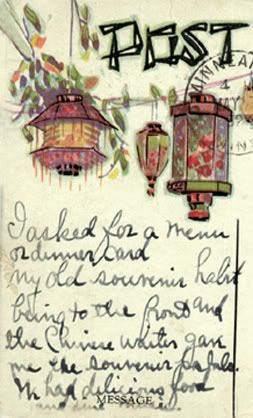 POST
MINNEAP
1
MAY
I asked for a menu
or dinner card
my old souvenir habit
being to the front and
the Chinese waiter gave
me the souvenir
MESSAGE
We had delicious food